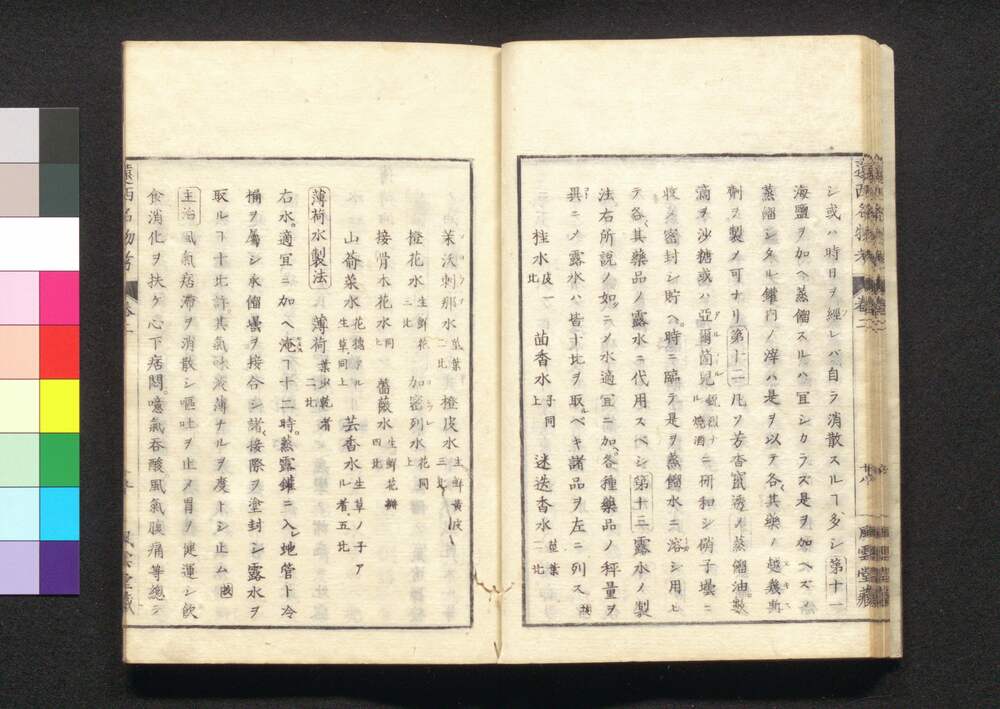 シ或ハ時日ヲ經レバ自ラ消散スルヿ多シ第十一
海鹽ヲ加ヘ蒸餾スルハ宜シカラズ是ヲ加ヘズメ
蒸餾シタル罐内ノ滓ハ是ヲ以テ各其藥ノ越幾斯
劑ヲ製メ可ナリ第十二凡ソ芳香竄透ノ蒸餾油數
滴ヲ沙糖或ハ亞爾箇兒ニ研和シ硝子壜ニ
收メ密封シ貯ヘ時ニ臨テ是ヲ蒸餾水ニ溶シ用ヒ
テ各其藥品ノ露水ニ代用スベシ第十三露水ノ製
法右所説ノ如シ水適宜ニ加ヘ各種藥品ノ秤量ヲ
異ニメ露水ハ皆十比ヲ取ルベキ諸品ヲ左ニ列ス
桂水皮一比 茴香水子同上 迷迭香水葉二比
遠西名物考 卷二
風雲堂藏
茉沃剌那水葉二比 橙皮水生鮮黄皮三比
橙花水生鮮花三比 加密列水花同上
接骨木花水同上 薔薇水生鮮花瓣四比
山葵菜水 芸香水生草ノ子アル者五比
薄荷水製法 薄荷葉出乾者二比
右水適宜ニ加ヘ淹スヿ十二時蒸露罐ニ入レ地管ト冷
桶ヲ屬シ承餾壜ヲ接合シ諸接際ヲ塗封シ露水ヲ
取ルヿ十比許其氣味淡薄ナルヲ度トシ止ム
主治風氣痞滯ヲ消散シ嘔吐ヲ止メ胃ヲ健運シ飲
食消化ヲ扶ケ心下痞悶噫氣呑酸風氣腹痛等總テ
遠西名物考 卷二
風雲堂藏